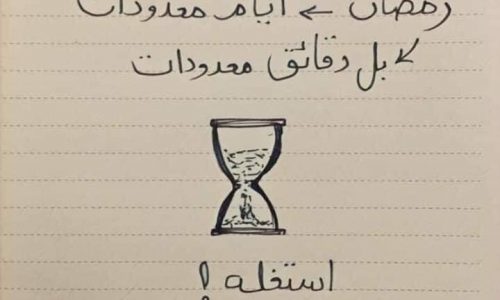 رمضان ← أيام معدودات
↙ بل دقائق معدودات
استغله !